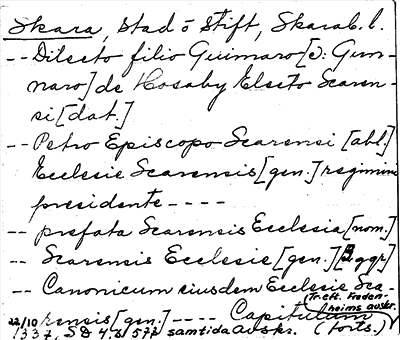 Skara, stad o Stift, Skarab. l.
-- Dilecto filio Guimaro [ɔ: Gun-
naro] de Hosaby Electo Scaren-
si [dat.]
-- Petro Episcopo Scarensi [abl.]
Ecclesie Scarensis [gen.] regimini
presidente ----
-- prefata Scarensis Ecclesia [nom.]
-- Scarensis Ecclesie [gen.] [3 ggr]
-- Canonicum eiusdem Ecclesie Sca-
(Tr. eft. Freden-
heims avskr.
rensis [gen.] ---- Capitulum
22/10 1337. SD 4, s 577 samtida avskr. (forts.)